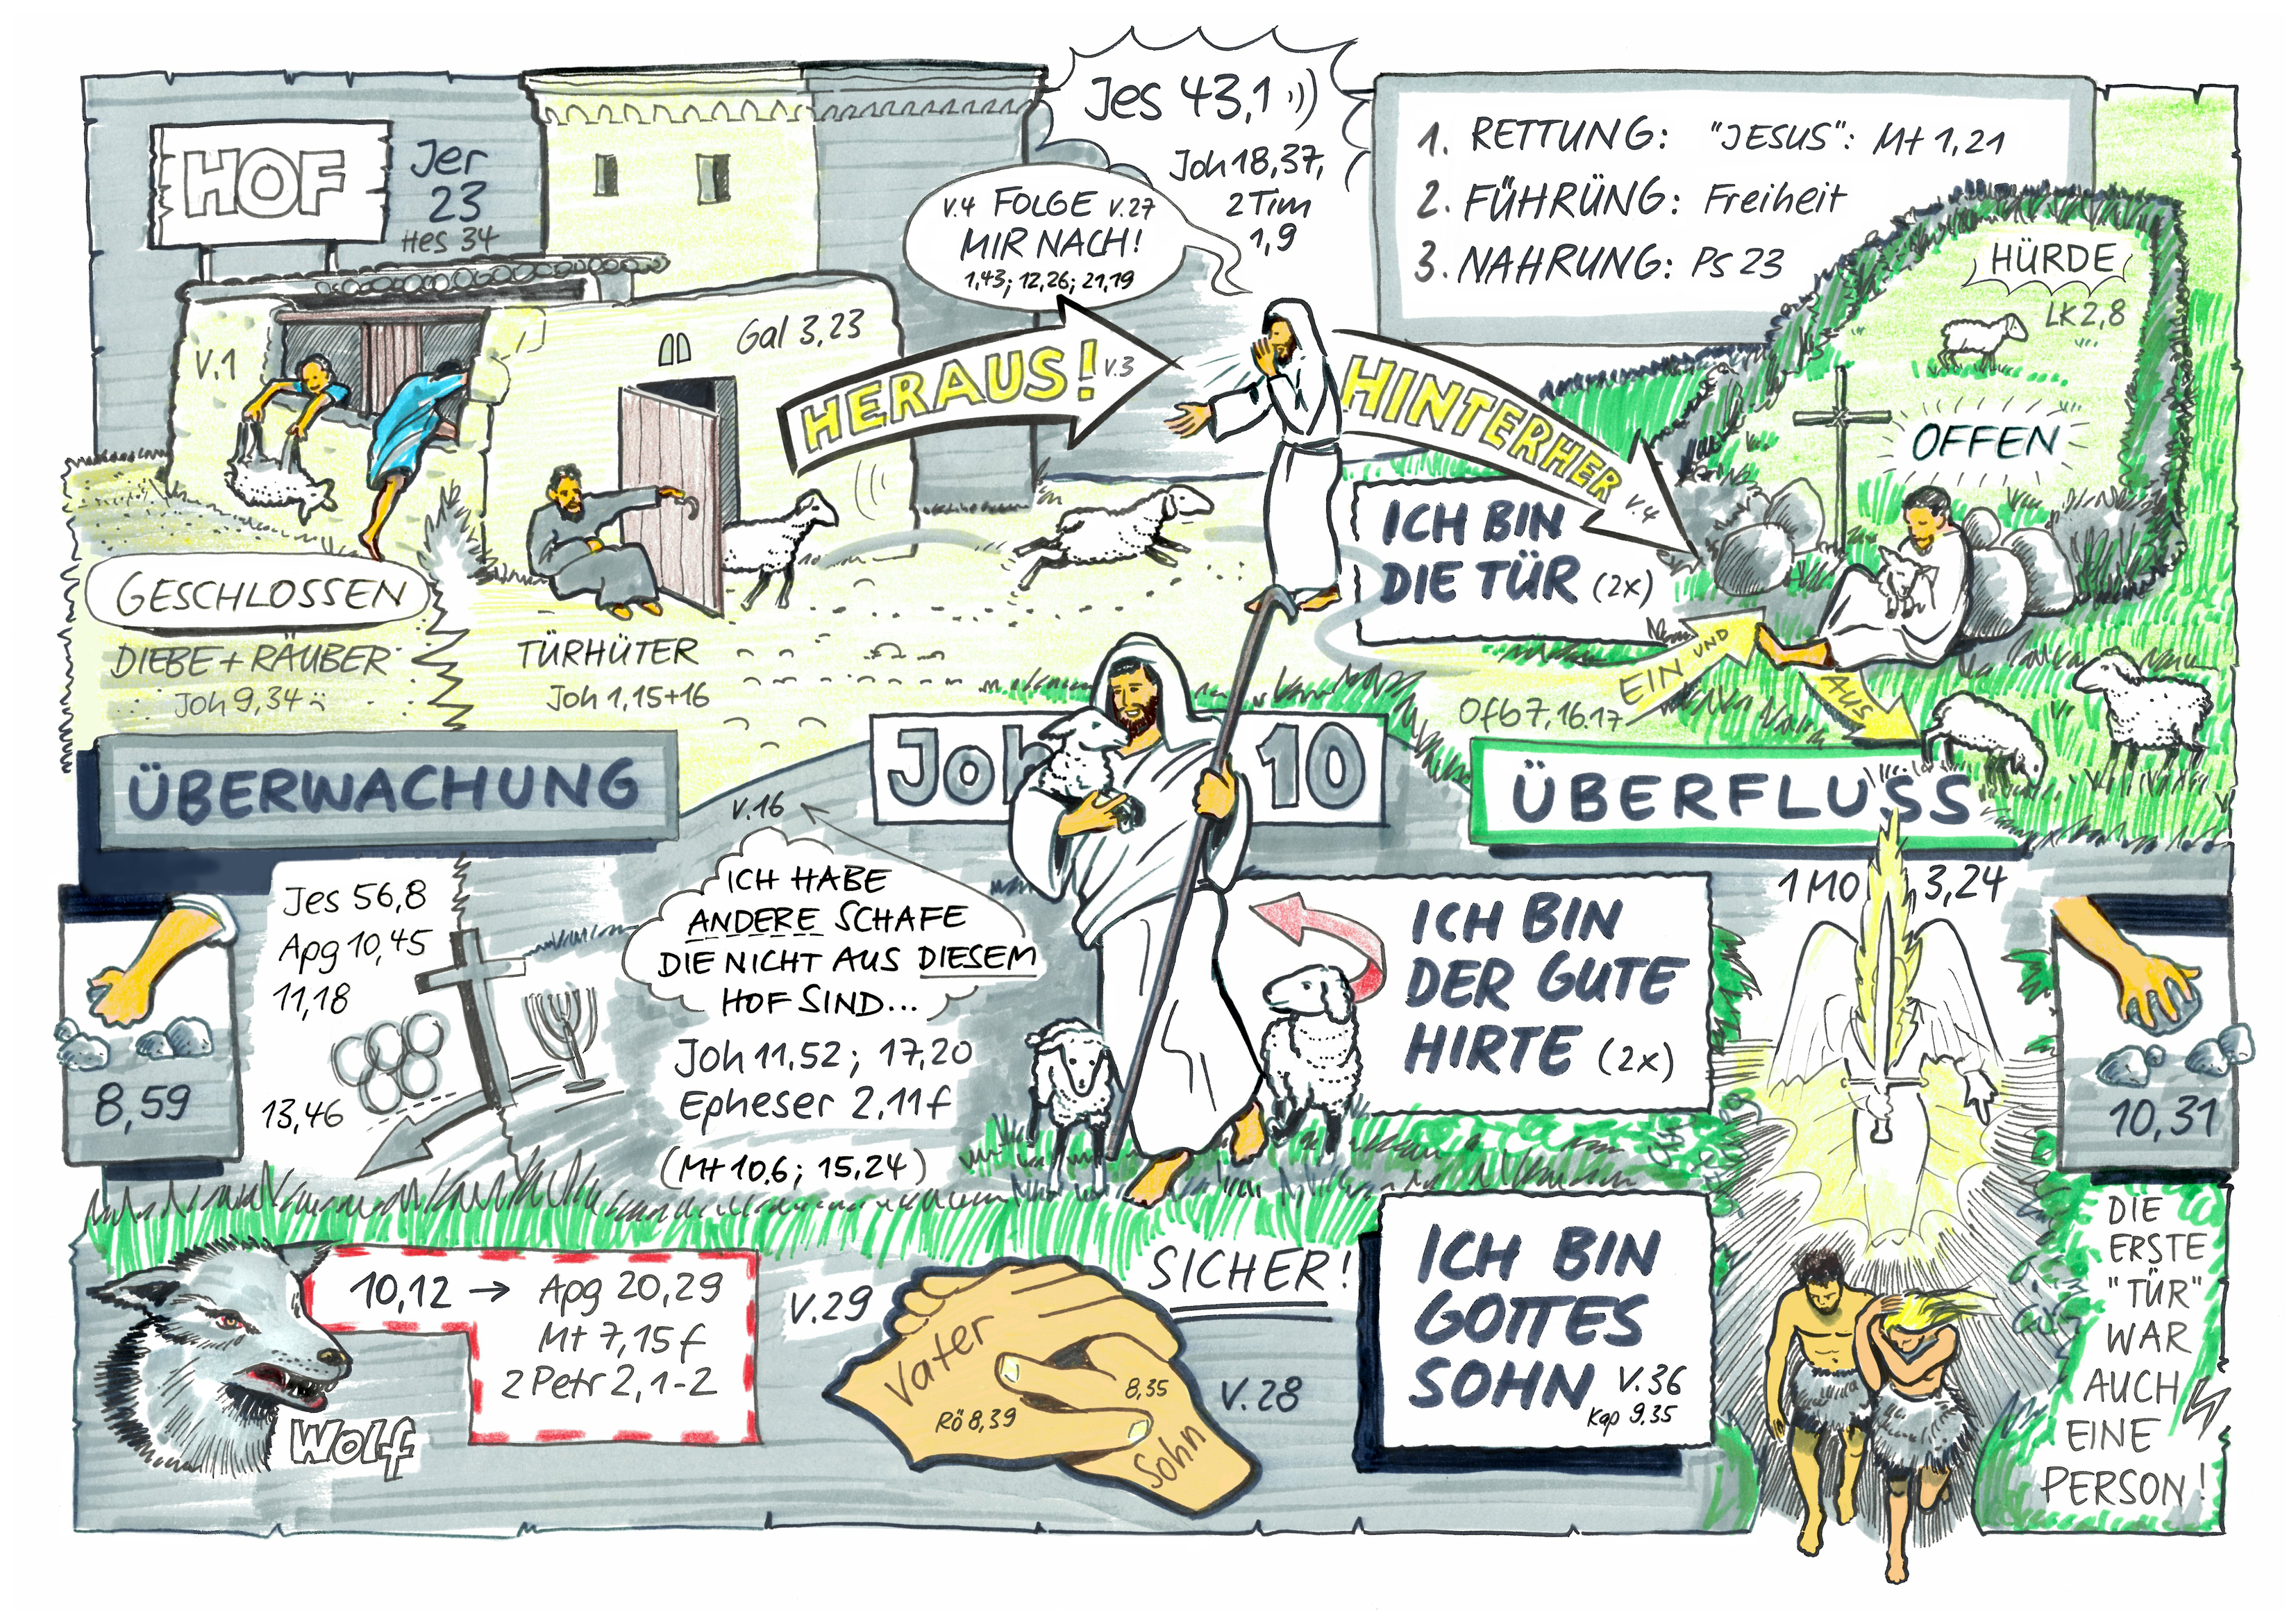 HOF
Jer
23
Hes 34
Jes 43,1
Joh 18,37,
2 Tim
1,9
V.4 FOLGE V.27
MIR NACH!
1,43; 12,26; 21,19
1. RETTUNG: "JESUS": Mt 1,21
2. FÜHRÜNG: Freiheit
3. NAHRUNG: Ps 23
HÜRDE
LK 2,8
OFFEN
V.1
Gal 3,23
HERAUS! V.3
HINTERHER V.4
ICH BIN
DIE TÜR (2x)
GESCHLOSSEN
DIEBE + RÄUBER
Joh 9,34
TÜRHÜTER
Joh 1,15+16
EIN UND
AUS
Ofb 7,16.17
ÜBERWACHUNG
Joh 10
ÜBERFLUSS
V.16
ICH HABE
ANDERE SCHAFE
DIE NICHT AUS DIESEM
HOF SIND...
Joh 11,52; 17,20
Epheser 2,11f
(Mt 10,6; 15,24)
Jes 56,8
Apg 10,45
11,18
13,46
8,59
ICH BIN
DER GUTE
HIRTE (2x)
1 MO 3,24
10,31
10,12 → Apg 20,29
Mt 7,15f
2 Petr 2,1-2
Wolf
V.29
SICHER!
Vater
Rö 8,39
8,35
Sohn
V.28
ICH BIN
GOTTES
SOHN V.36
Kap 9,35
DIE
ERSTE
"TÜR"
WAR
AUCH
EINE
PERSON!